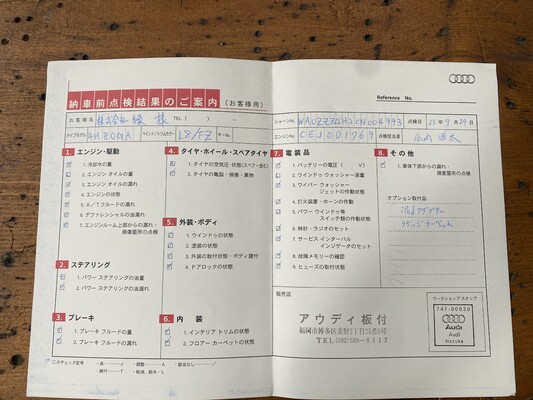 納車前点検結果のご案内 (お客様用)
Reference No.
お客様名 株式会社 様 TEL ( ) -
シャシーNo. 点検日 25年9月24日
タイプモデル 4H80GA ペイント/トリムカラー L8/FZ キーNo.
エンジンNo. CEJ001769 点検担当者
1. エンジン・駆動
1. 冷却水の量
2. エンジン オイルの量
3. エンジン オイルの漏れ
4. エンジンの状態
5. A/Tフルードの漏れ
6. デファレンシャルの油漏れ
7. エンジンルーム上部からの漏れ・
損害箇所の点検
2. ステアリング
1. パワー ステアリングの油量
2. パワー ステアリングの油漏れ
3. ブレーキ
1. ブレーキ フルードの量
2. ブレーキ フルードの漏れ
4. タイヤ・ホイール・スペアタイヤ
1. タイヤの空気圧・状態(スペアー含む)
2. タイヤの亀裂・損傷・異物
5. 外装・ボディ
1. ウインドゥの状態
2. 塗装の状態
3. 外装の取付状態・ボディ建付
4. ドアロックの状態
6. 内装
1. インテリア トリムの状態
2. フロアー カーペットの状態
□のチェック記号 ・良 ✓ ・調整 A ・該当なし /
・締付 T ・給油、給水 L
7. 電装品
1. バッテリーの電圧 ( V)
2. ウインドゥ ウォッシャー液量
3. ワイパー ウォッシャー
ジェットの作動状態
4. 灯火装置・ホーンの作動
5. パワー ウインドゥ等
スイッチ類の作動状態
6. 時計・ラジオのセット
7. サービス インターバル
インジゲータのセット
8. 故障メモリーの確認
9. ヒューズの取付状態
8. その他
1. 車体下部からの漏れ・
損害箇所の点検
オプション取付品
iPodアダプター
販売店
アウディ板付
福岡市博多区
TEL(092)589-6112
ワークショップ スタンプ
741-90830
Audi
Audi